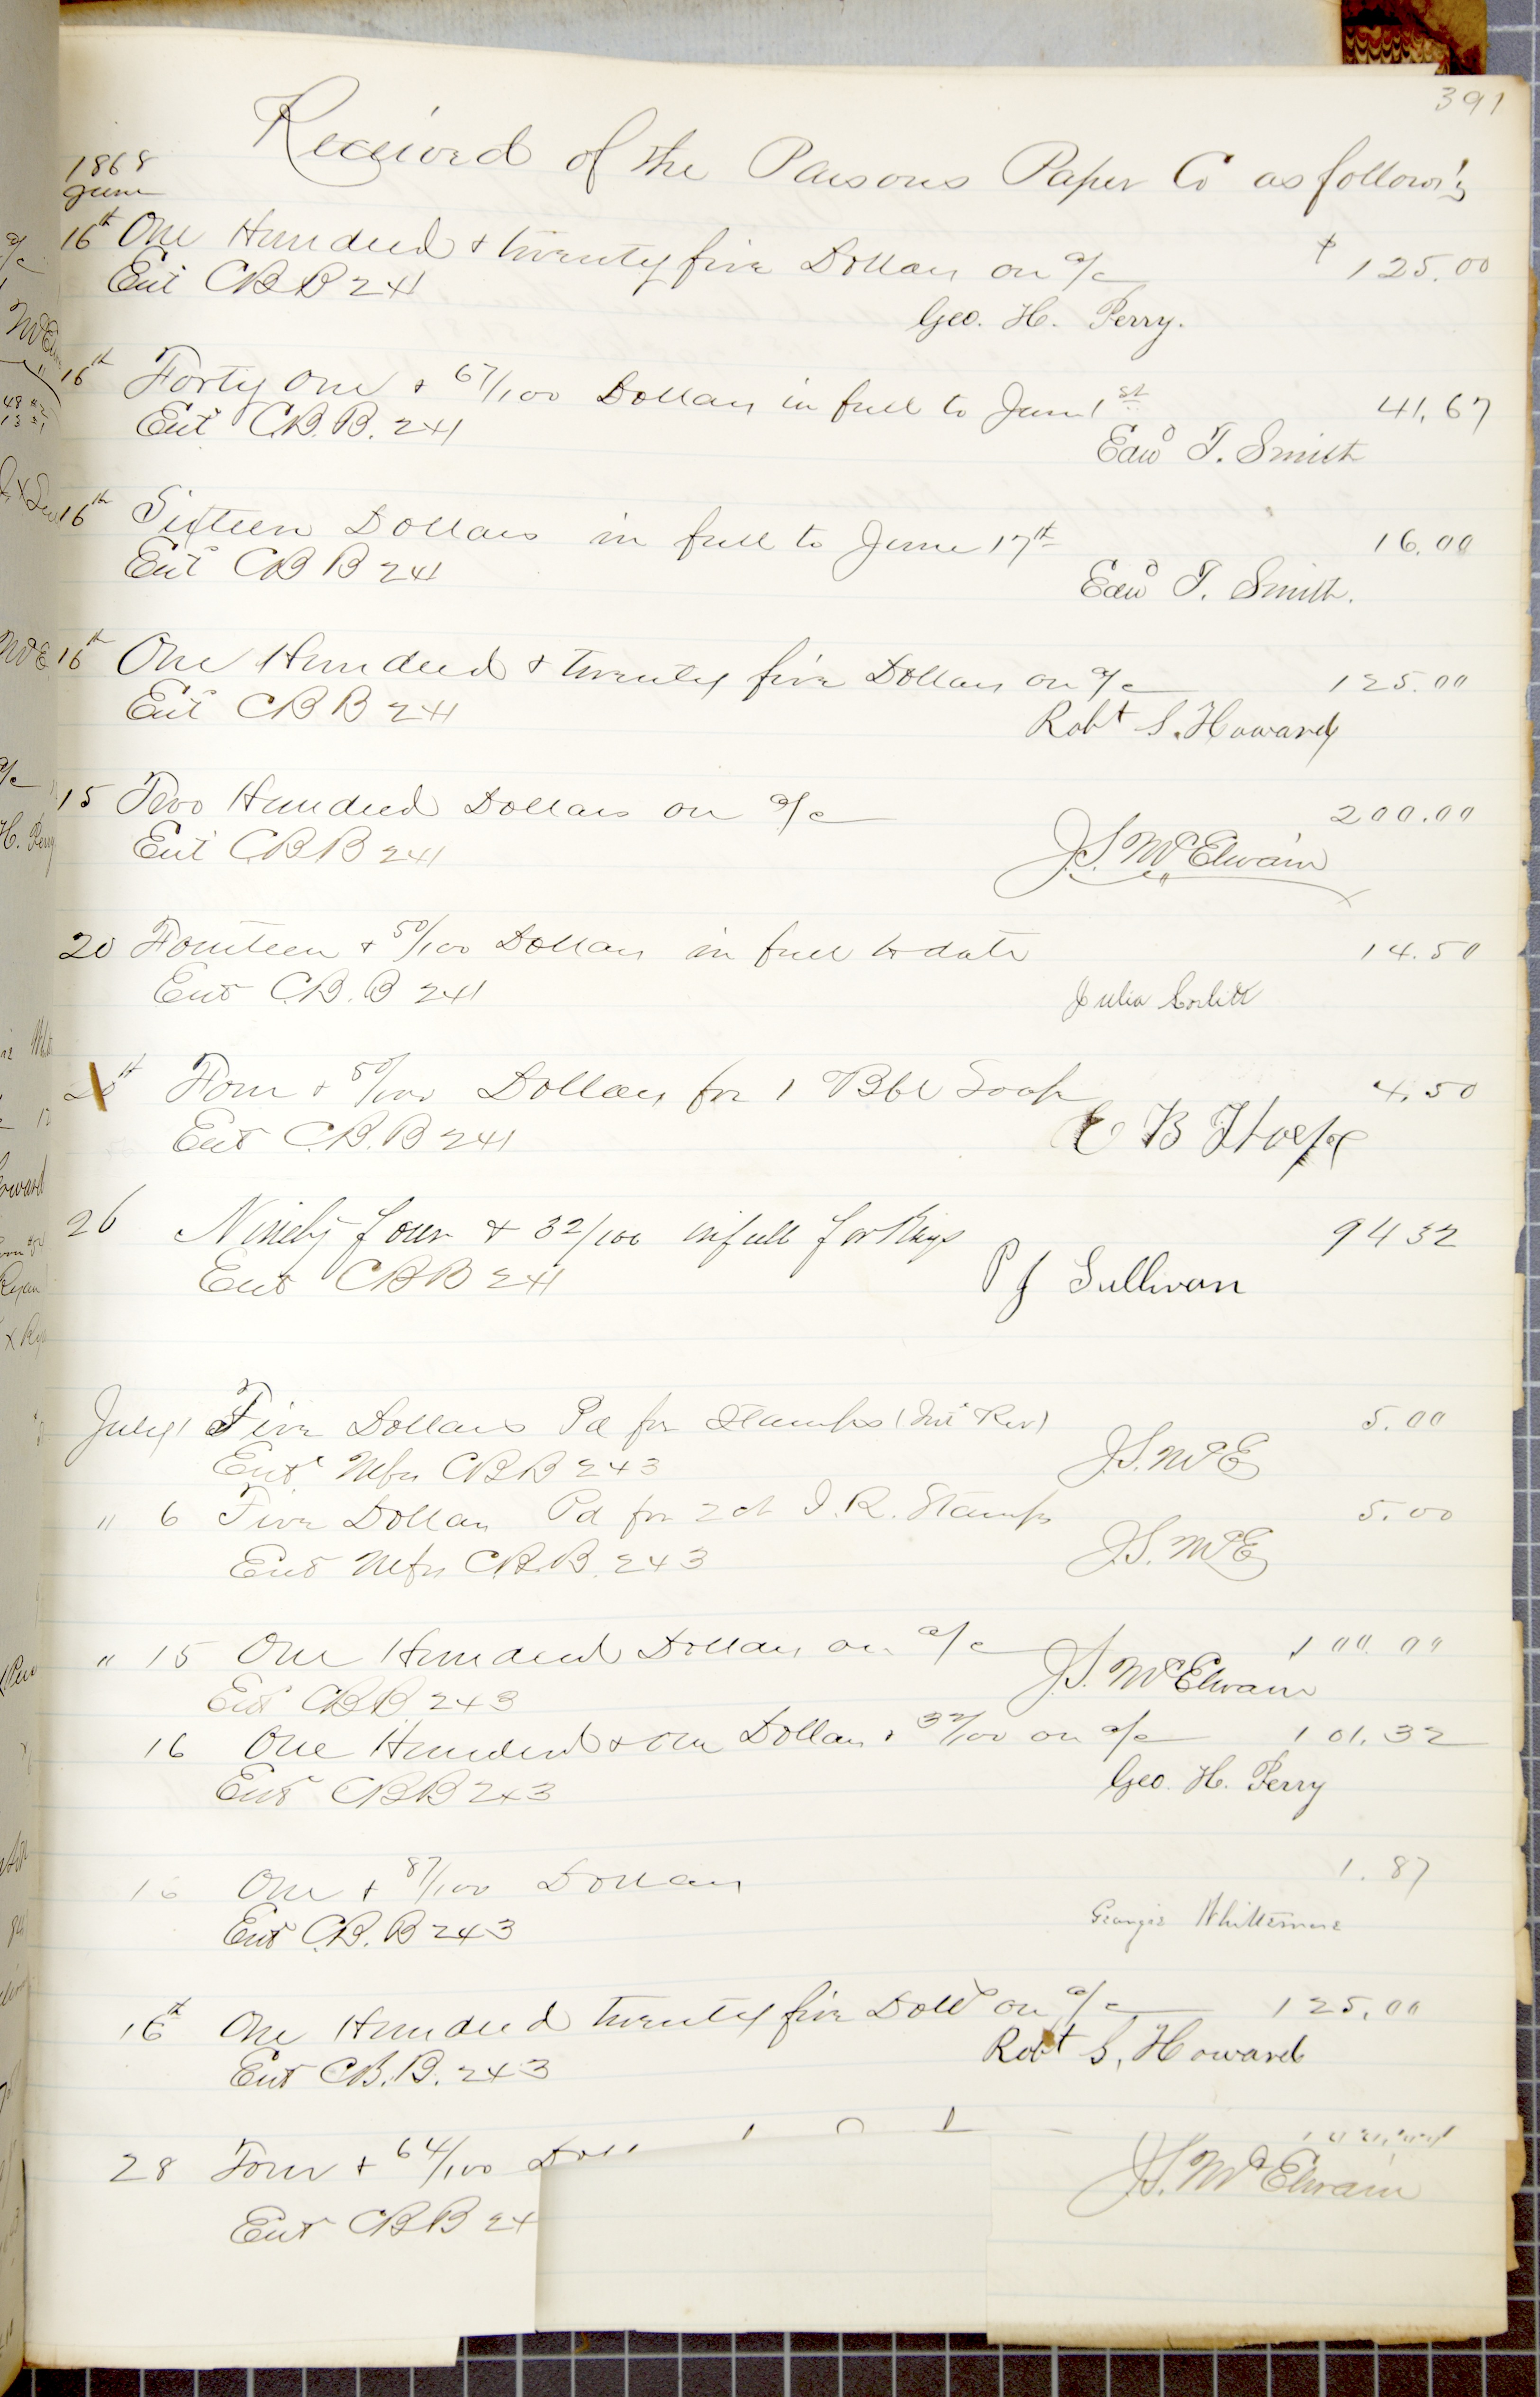 391
Received of the Parsons Paper Co as follows
1868
June
16th One Hundred & twenty five Dollars on a/c $ 125.00
Ent CBB 241
Geo. H. Perry.
16th Forty One & 67/100 Dollars in full to June 1st 41.67
Ent C.B.B. 241
Edwd T. Smith
16th Sixteen Dollars in full to June 17th 16.00
Ent CBB 241
Edwd T. Smith.
16th One Hundred & twenty five Dollars on a/c 125.00
Ent CBB 241
Robt S. Howard
15 Two Hundred Dollars on a/c 200.00
Ent CBB 241
J.S. McElwain
20 Fourteen & 50/100 Dollars in full to date 14.50
Ent C.B.B 241
Julia
Four & 50/100 Dollars for 1 Bbl Soap 4.50
Ent C.B.B 241
E B Thorpe
26 Ninety four & 32/100 in full for Rags 94 32
Ent CBB 241
P J Sullivan
July 1 Five Dollars Pd for Stamps (Int Rev) 5.00
Ent Mfrs CBB 243
J.S. McE
" 6 Five Dollars Pd for 2 ct I.R. Stamps 5.00
Ent Mfrs C.B.B. 243
J.S. McE
" 15 One Hundred Dollars on a/c 100.00
Ent CBB 243
J.S. McElwain
16 One Hundred & One Dollars & 32/100 on a/c 101.32
Ent CBB 243
Geo. H. Perry
16 One & 87/100 Dollars 1.87
Ent C.B.B 243
Georgie Whittemore
16th One Hundred twenty five Dolls on a/c 125.00
Ent C.B.B. 243
Robt S. Howard
28 Four & 64/100 Doll
Ent CBB 24
J.S. McElwain